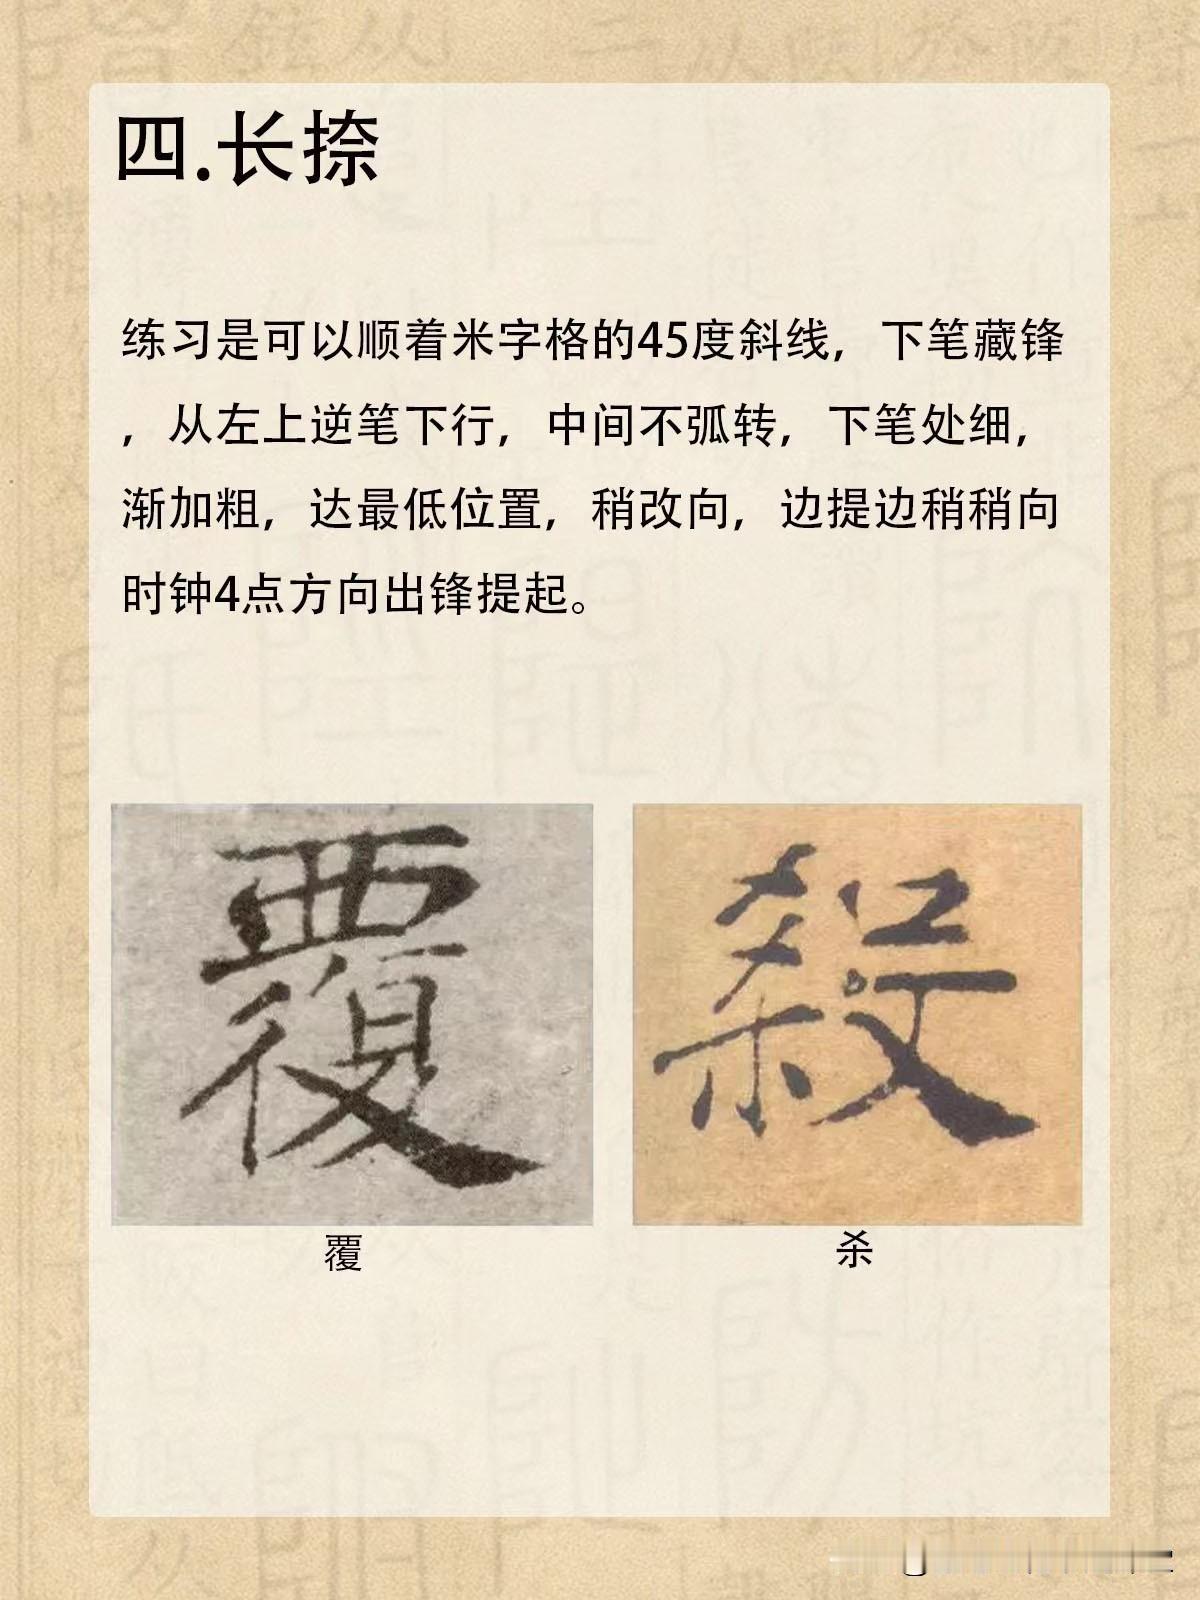 四.长捺
练习是可以顺着米字格的45度斜线，下笔藏锋
，从左上逆笔下行，中间不弧转，下笔处细，
渐加粗，达最低位置，稍改向，边提边稍稍向
时钟4点方向出锋提起。
覆 殺
覆 杀